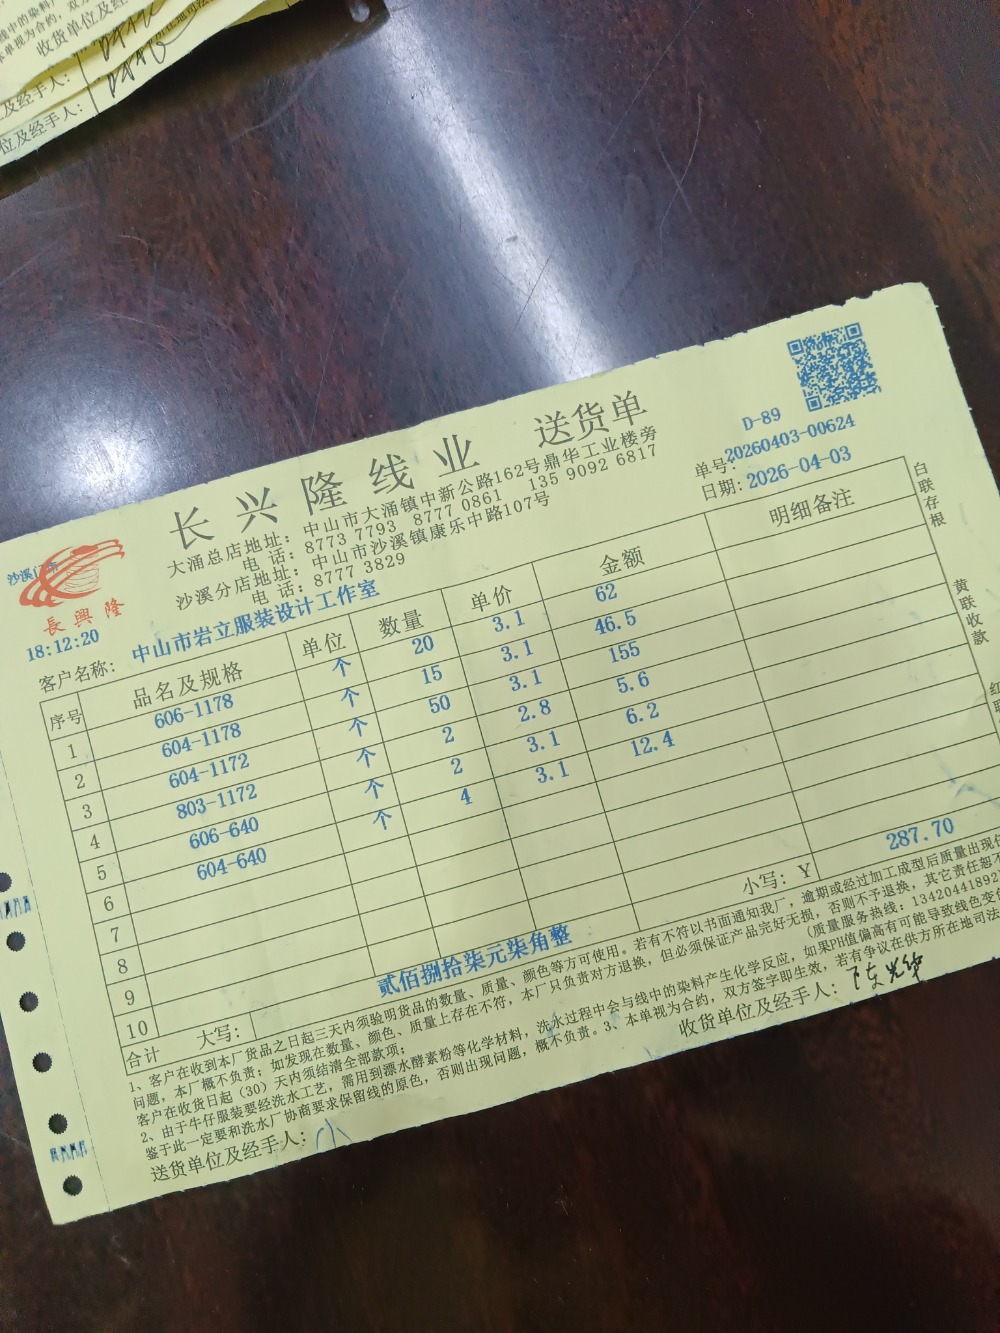 收货单位及经
及经手人：
位及经手人：
长兴隆线业 送货单
D-89
大涌总店地址：中山市大涌镇中新公路162号鼎华工业楼旁
电 话：8773 7793 8777 0861 135 9092 6817
沙溪分店地址：中山市沙溪镇康乐中路107号
电 话：8777 3829
单号：20260403-00624
日期：2026-04-03
長興隆
18:12:20
客户名称：中山市岩立服装设计工作室
序号 品名及规格 单位 数量 单价 金额 明细备注
1 606-1178 个 20 3.1 62
2 604-1178 个 15 3.1 46.5
3 604-1172 个 50 3.1 155
4 803-1172 个 2 2.8 5.6
5 606-640 个 2 3.1 6.2
6 604-640 个 4 3.1 12.4
7
8
9
10
合计 大写：贰佰捌拾柒元柒角整 小写：Y 287.70
1、客户在收到本厂货品之日起三天内须验明货品的数量、质量、颜色等方可使用。若有不符以书面通知我厂，逾期或经过加工成型后质量出现任
问题，本厂概不负责；如发现在数量、颜色、质量上存在不符，本厂只负责对方退换，但必须保证产品完好无损，否则不予退换，其它责任恕不
客户在收货日起（30）天内须结清全部款项；（质量服务热线：13420441892）
2、由于牛仔服装要经洗水工艺，需用到漂水酵素粉等化学材料，洗水过程中会与线中的染料产生化学反应，如果PH值偏高有可能导致线色变色
鉴于此一定要和洗水厂协商要求保留线的原色，否则出现问题，概不负责。3、本单视为合约，双方签字即生效，若有争议在供方所在地司法
送货单位及经手人： 收货单位及经手人：
白联存根
黄联收款